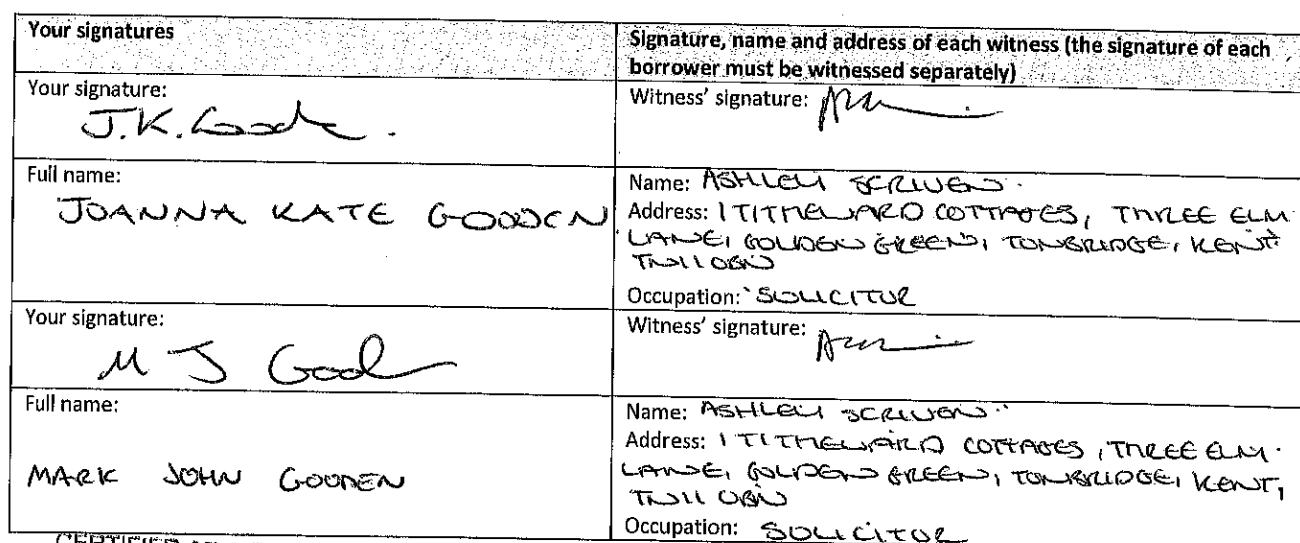 Your signatures
Signature, name and address of each witness (the signature of each
borrower must be witnessed separately)
Your signature:
J.K. Good
Witness' signature:
Full name:
JOANNA KATE GOODEN
Name: ASHLEY SCRIVEN
Address: 1 TITHEWARD COTTAGES, THREE ELM
LANE, GOLDEN GREEN, TONBRIDGE, KENT
TN11
Occupation: SOLICITOR
Your signature:
M J Good
Witness' signature:
Full name:
MARK JOHN GOODEN
Name: ASHLEY SCRIVEN
Address: 1 TITHEWARD COTTAGES, THREE ELM
LANE, GOLDEN GREEN, TONBRIDGE, KENT,
TN11
Occupation: SOLICITOR
CERTIFIED